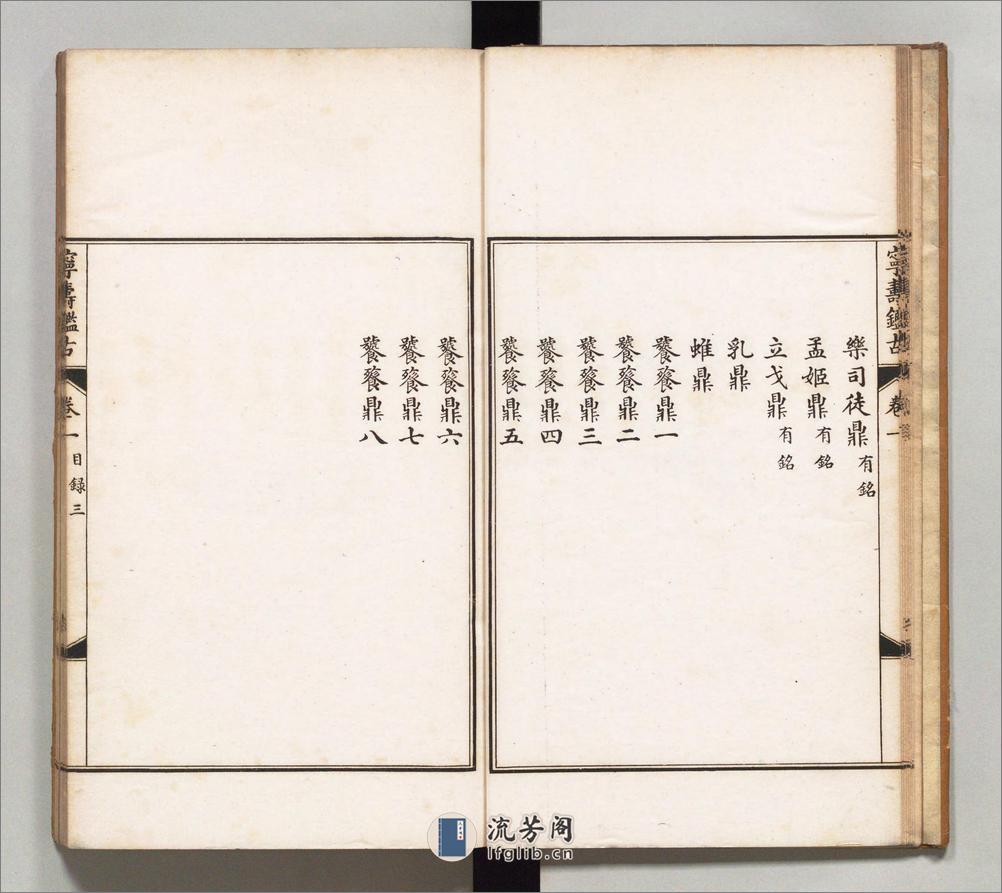 寧壽鑑古 卷一
樂司徒鼎有銘
孟姬鼎有銘
立戈鼎有銘
乳鼎
蜼鼎
饕餮鼎一
饕餮鼎二
饕餮鼎三
饕餮鼎四
饕餮鼎五
饕餮鼎六
饕餮鼎七
饕餮鼎八
寧壽鑑古 卷一目錄 三
流芳阁
lfglib.cn